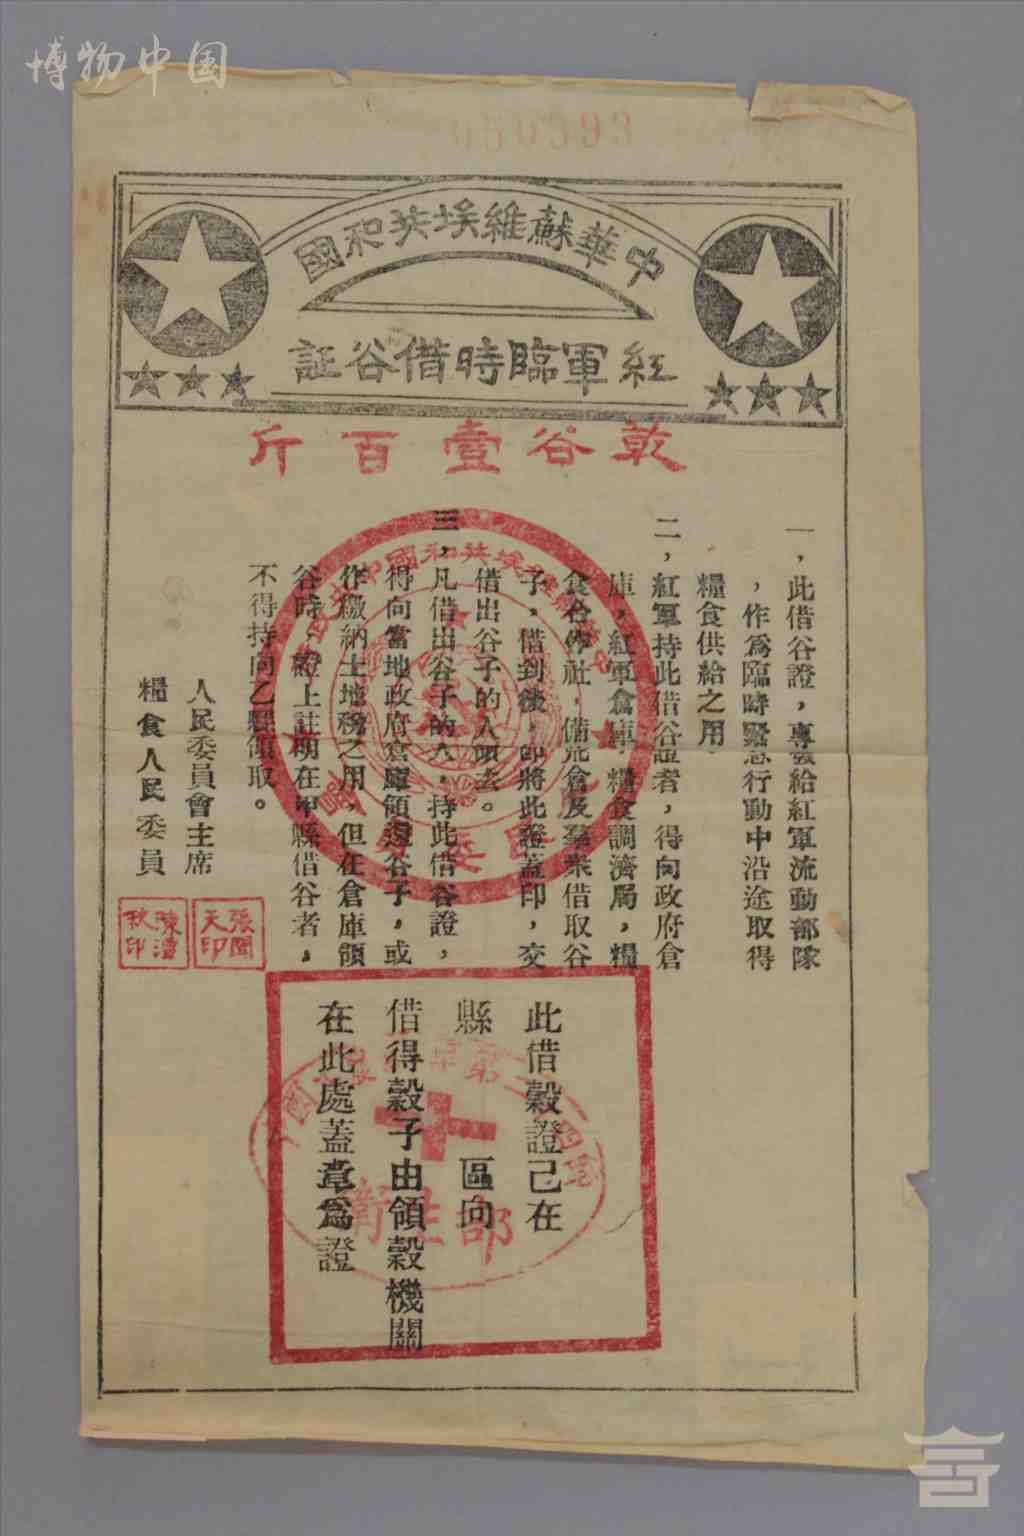 博物中国
0500393
中華蘇維埃共和國
紅軍臨時借谷証
乾谷壹百斤
一,此借谷證,專發給紅軍流動部隊
,作爲臨時緊急行動中沿途取得
糧食供給之用.
二,紅軍持此借谷證者,得向政府倉
庫,紅軍倉庫,糧食調濟局,糧
食合作社,備荒倉及羣衆借取谷
子,借到後,即將此證蓋印,交
借出谷子的人領去。
三,凡借出谷子的人,持此借谷證,
得向當地政府倉庫領還谷子,或
作繳納土地稅之用,但在倉庫領
谷時,證上註明在甲縣借谷者,
不得持向乙縣領取。
人民委員會主席
糧食人民委員
張聞天印
陳潭秋印
此借穀證己在
縣 區向
借得穀子由領穀機關
在此處蓋章爲證
衛生部